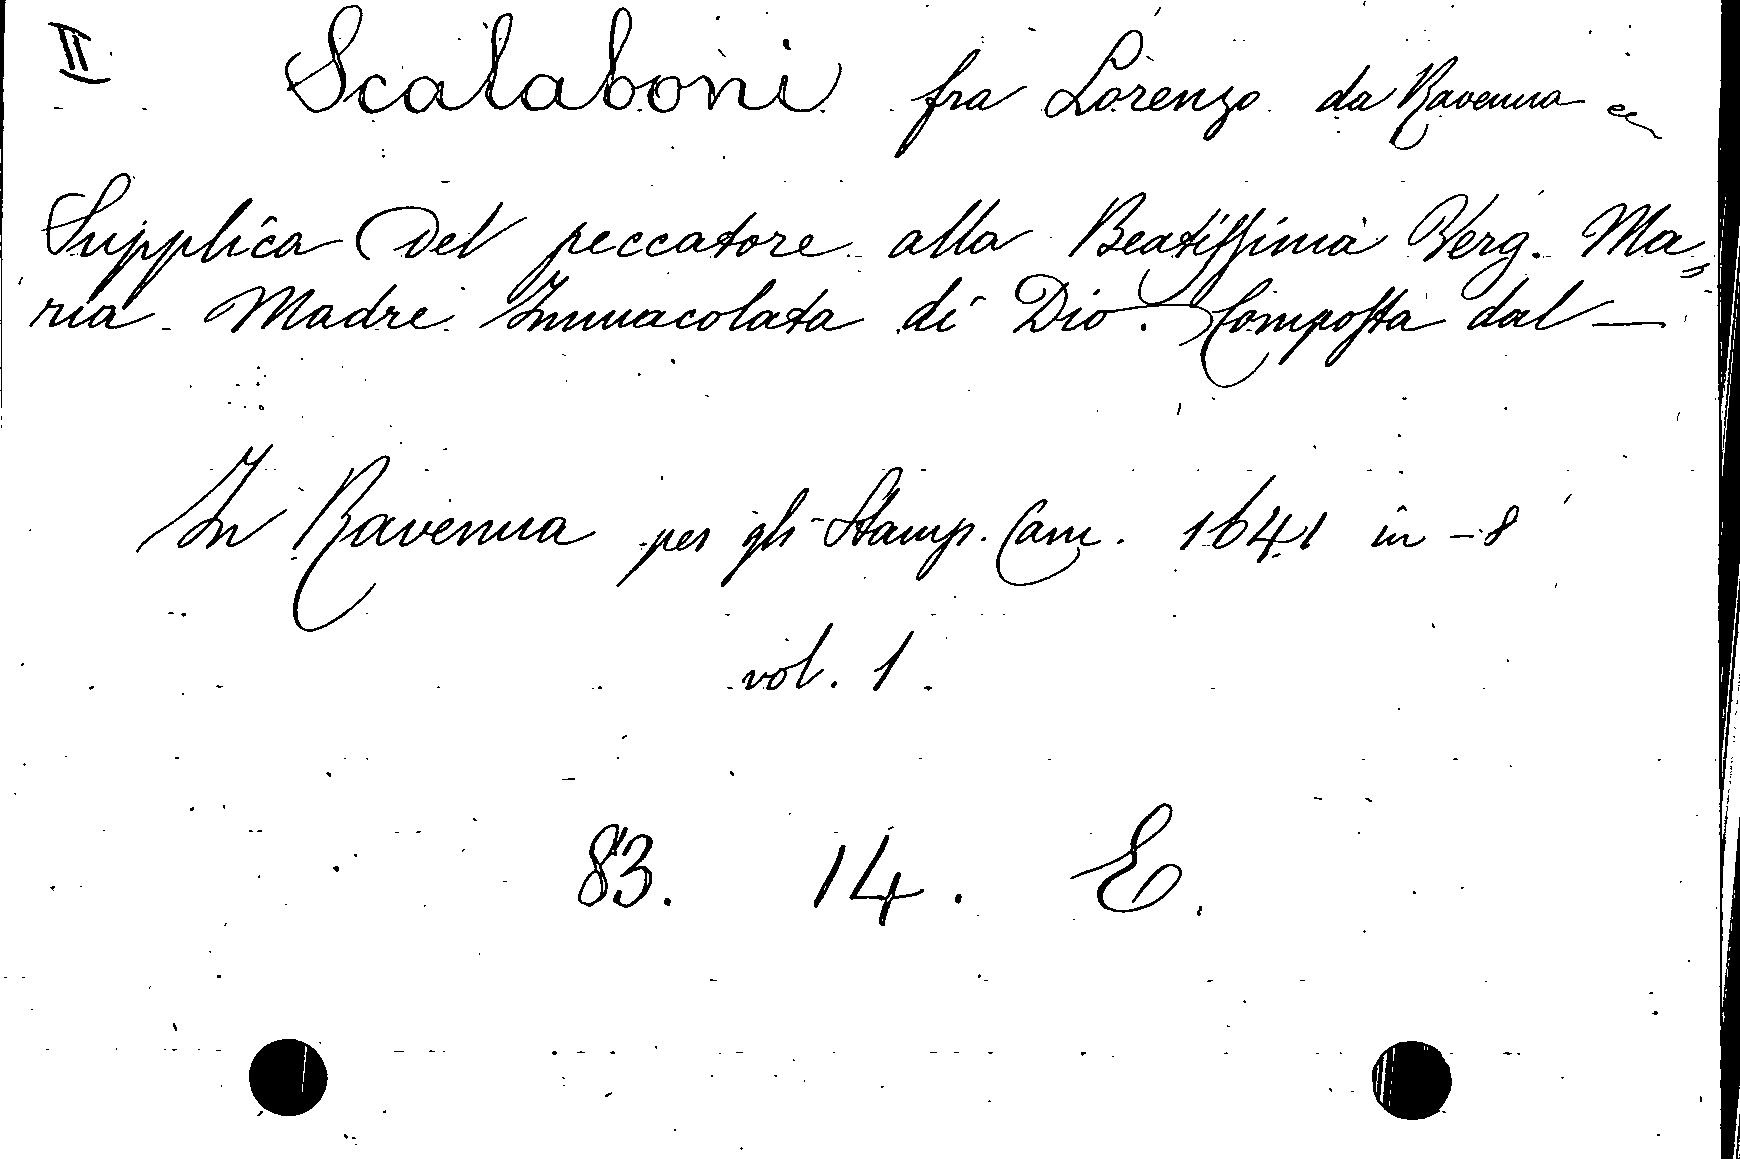 II Scalaboni fra Lorenzo da Ravenna
Supplica del peccatore alla Beatissima Verg. Ma-
ria Madre Immacolata di Dio. Composta dal —
In Ravenna per gli Stamp. Cam. 1641 in-8
vol. 1.
83. 14. E.